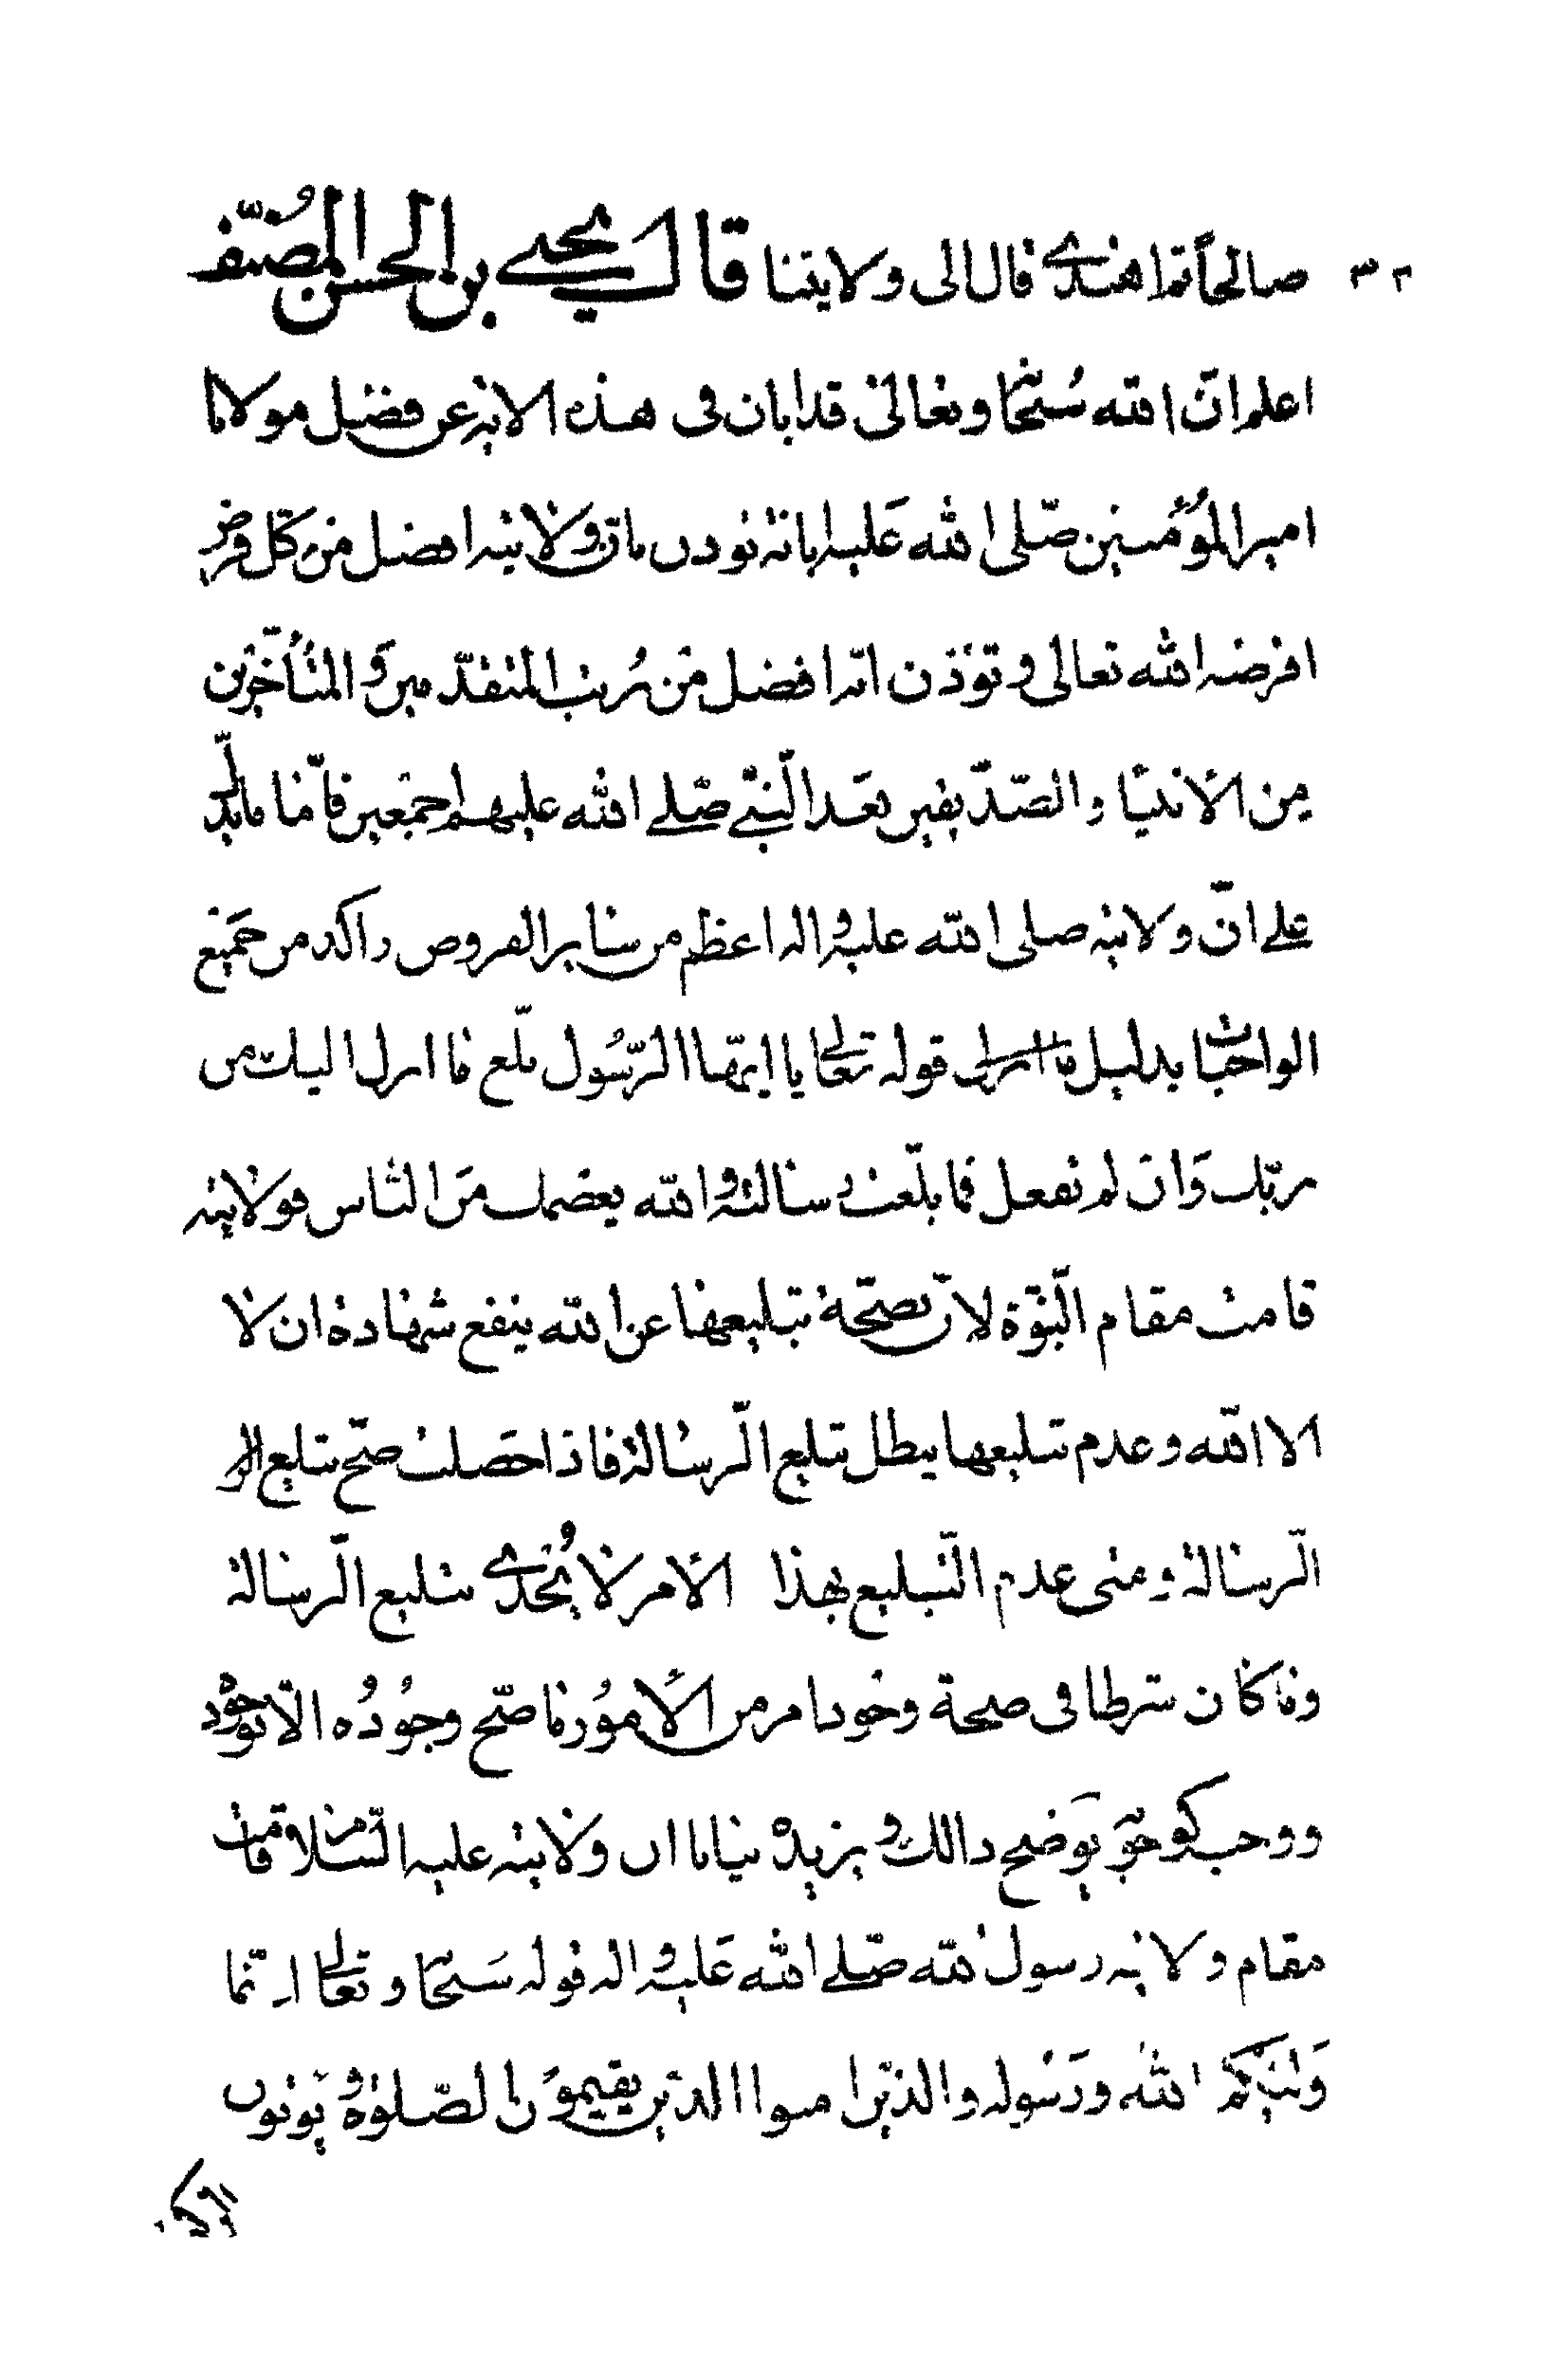 ٣٢ صالحاً ثم اهتدى قال الى ولايتنا قال يحيى بن الحسن المصنف
اعلم ان الله سبحا وتعالى قد ابان فى هذه الاية عن فضل مولانا
امير المؤمنين صلى الله عليه ابانة تودن بان ولايته افضل من كل فرض
افرضه الله تعالى وتؤذن انه افضل من المتقدمين والمتأخرين
من الانبيا والصديقين بعد النبى صلى الله عليهم اجمعين فاما ما يدل
على ان ولايته صلى الله عليه واله اعظم من ساير الفروض واكد من جميع
الواجبات بدليل قوله تعالى يا ايها الرسول بلغ ما انزل اليك من
ربك وان لم تفعل فما بلغت رسالته والله يعصمك من الناس فولايته
قامت مقام النبوة لان بصحة تبليغها عن الله ينفع شهادة ان لا
الا الله وعدم تبليغها يبطل تبليغ الرسالة فاذا حصلت صح تبليغ
الرسالة ومتى عدم التبليغ بهذا الامر لا يجدى تبليغ الرسالة
وما كان شرطا فى صحة وجود امر من الامور ما صح وجوده الا بوجوده
ووجب كوجوبه يوضح دالك ويزيده بيانا ان ولايته عليه السلام قامت
مقام ولاية رسول الله صلى الله عليه واله قوله سبحا وتعالى انما
وليكم الله ورسوله والذين امنوا الذين يقيمون الصلوة ويوتون
الزكا